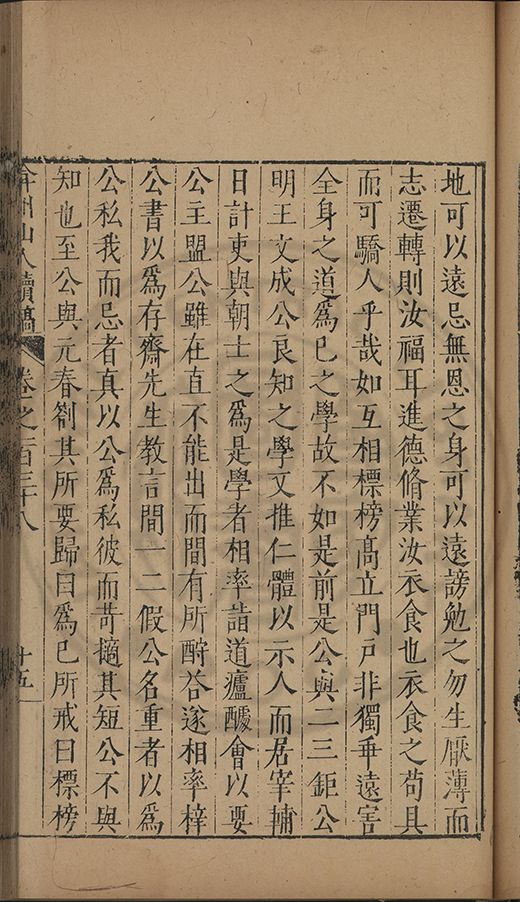 地可以遠忌無恩之身可以遠謗勉之勿生厭薄而
志遷轉則汝福耳進德脩業汝衣食也衣食之苟具
而可驕人乎哉如互相標榜高立門戶非獨乖遠害
全身之道爲已之學故不如是前是公與二三鉅公
明王文成公良知之學文推仁體以示人而居宰輔
日計吏與朝士之爲是學者相率詣道廬醵會以要
公主盟公雖在直不能出而間有所酧荅遂相率梓
公書以爲存齋先生教言間一二假公名重者以爲
公私我而忌者真以公爲私彼而苛擿其短公不與
知也至公與元春劄其所要歸曰爲已所戒曰標榜
弇州山人續稿 卷之一百三十八 十五